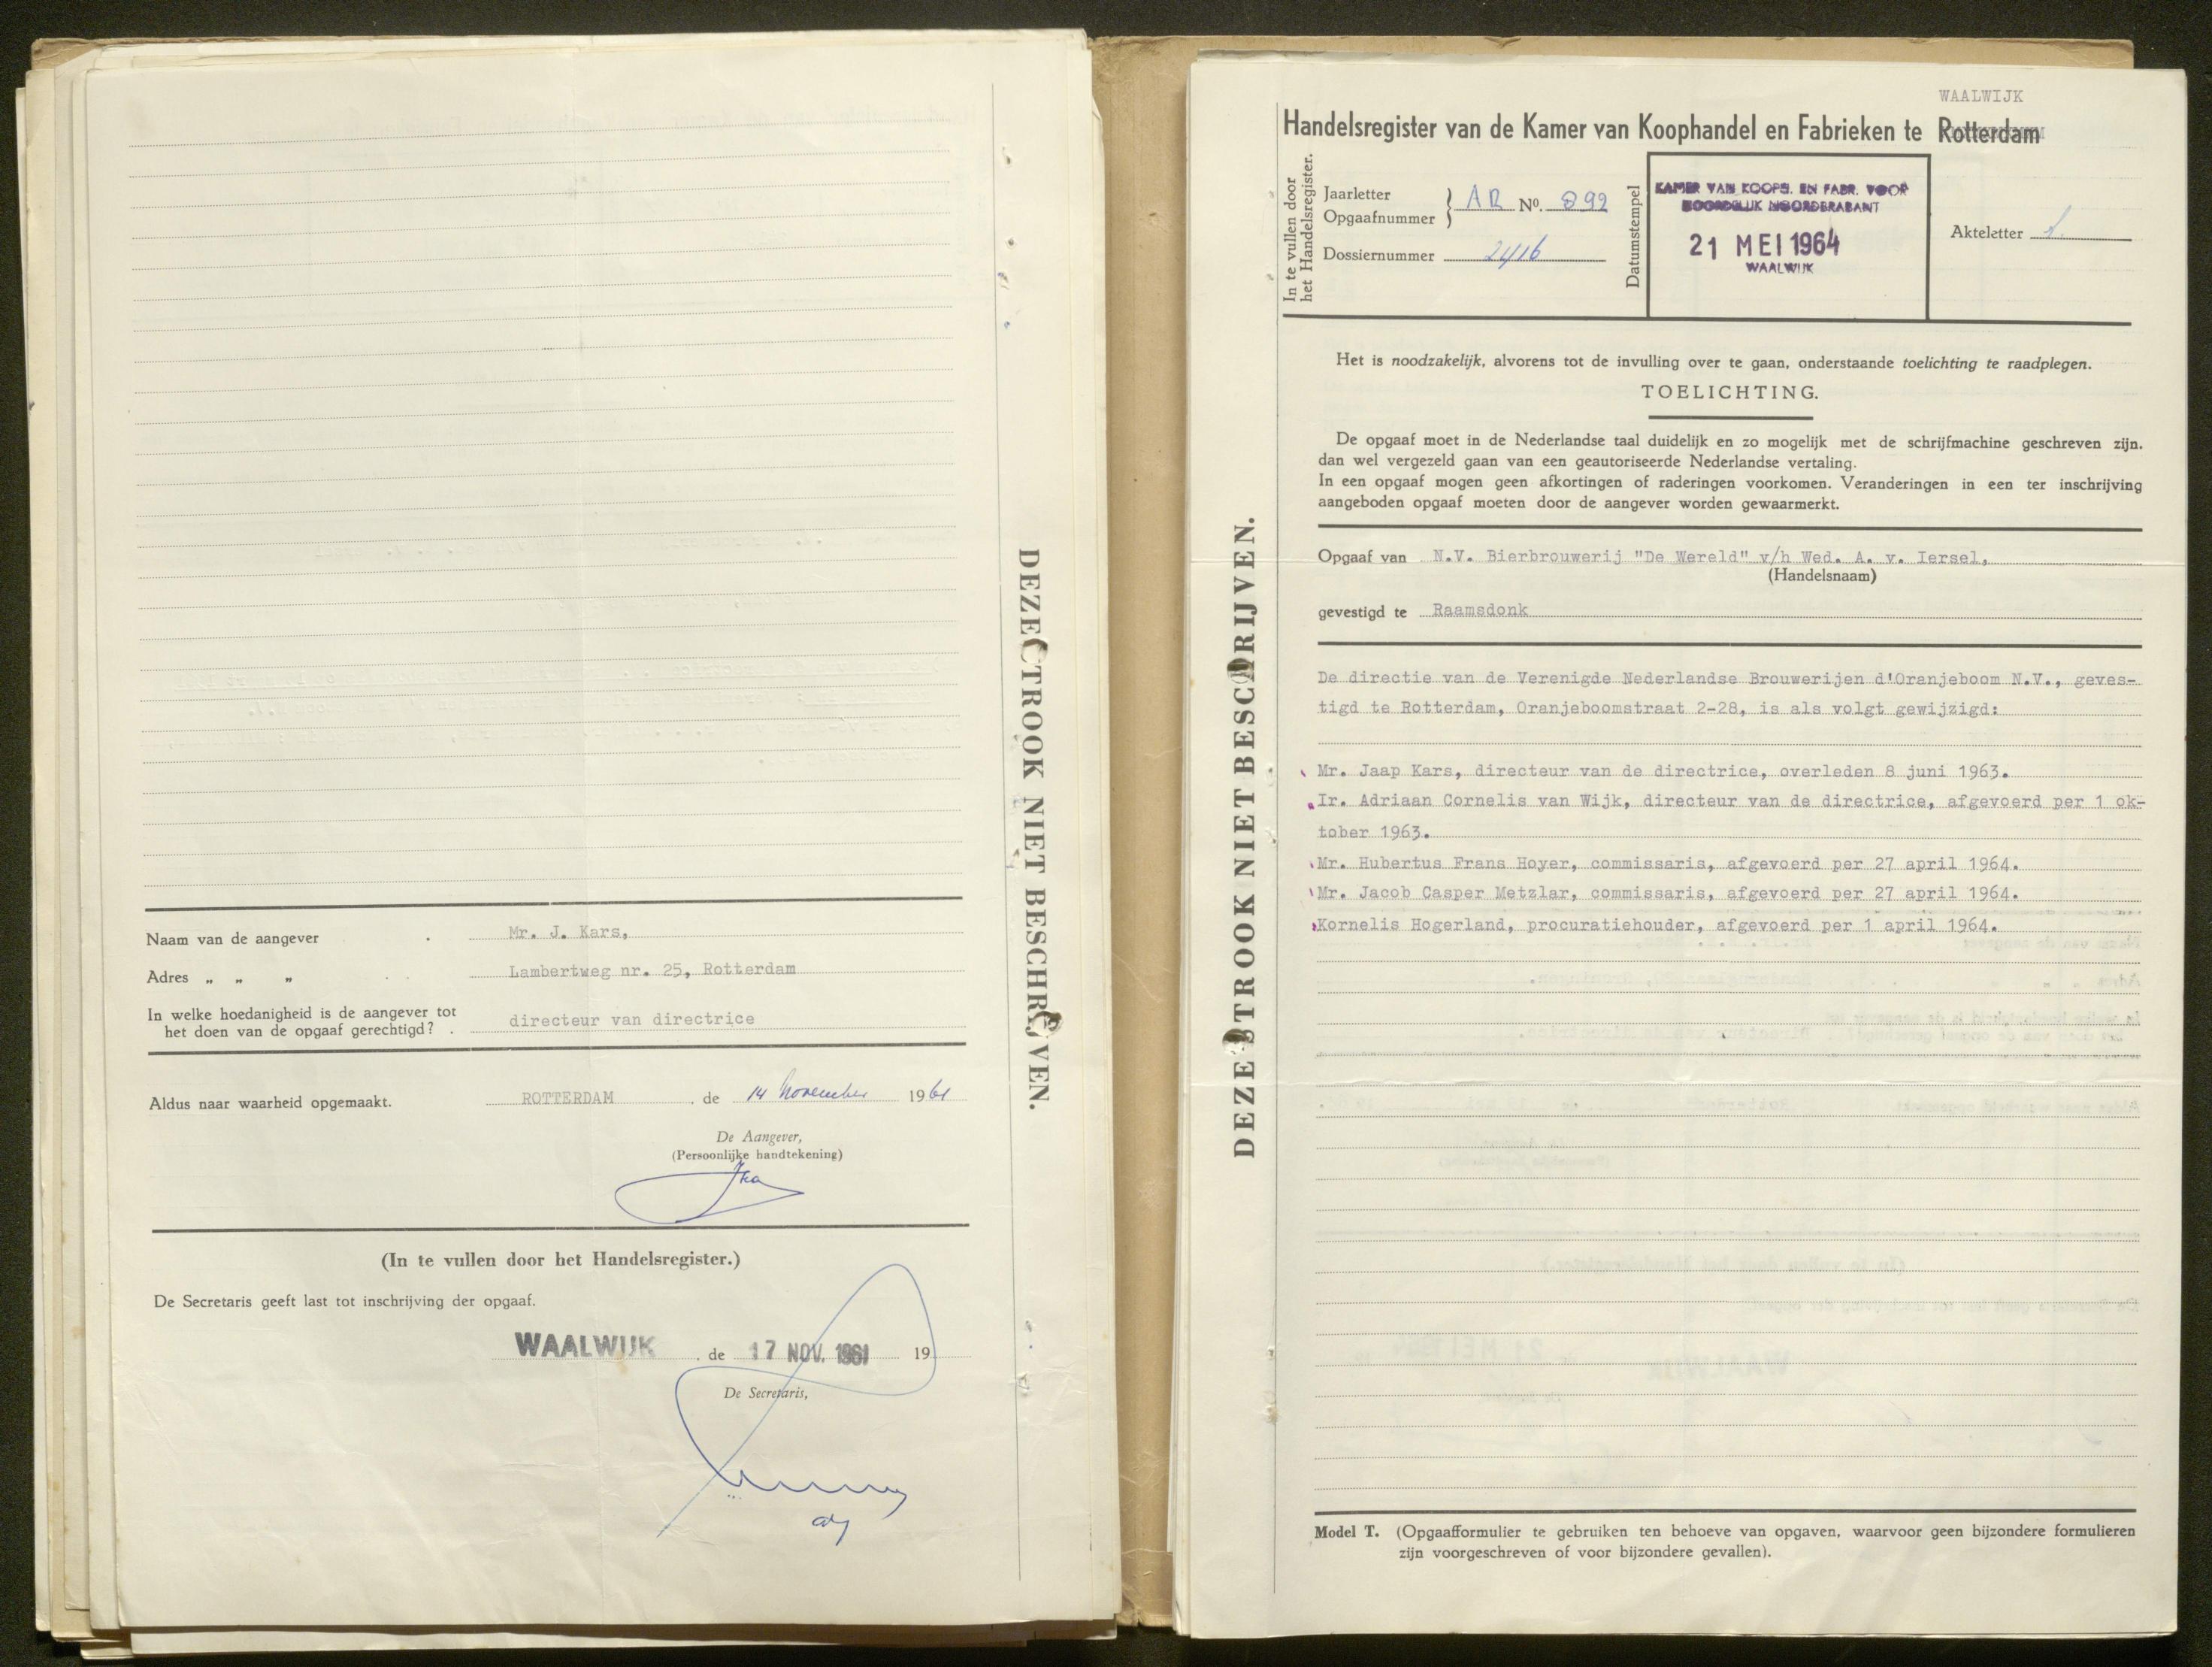 Naam van de aangever . Mr. J. Kars,
Adres „ „ „ . Lambertweg nr. 25, Rotterdam
In welke hoedanigheid is de aangever tot
het doen van de opgaaf gerechtigd? . directeur van directrice
Aldus naar waarheid opgemaakt. ROTTERDAM , de 14 November 1961
De Aangever,
(Persoonlijke handtekening)
(In te vullen door het Handelsregister.)
De Secretaris geeft last tot inschrijving der opgaaf.
WAALWIJK , de 17 NOV. 1961 19
De Secretaris,
DEZE STROOK NIET BESCHRIJVEN.
WAALWIJK
Handelsregister van de Kamer van Koophandel en Fabrieken te Rotterdam
In te vullen door
het Handelsregister.
Jaarletter
Opgaafnummer } AR No. 892
Dossiernummer 2416
Datumstempel
KAMER VAN KOOPH. EN FABR. VOOR
NOORDELIJK NOORDBRABANT
21 MEI 1964
WAALWIJK
Akteletter
Het is noodzakelijk, alvorens tot de invulling over te gaan, onderstaande toelichting te raadplegen.
TOELICHTING.
De opgaaf moet in de Nederlandse taal duidelijk en zo mogelijk met de schrijfmachine geschreven zijn.
dan wel vergezeld gaan van een geautoriseerde Nederlandse vertaling.
In een opgaaf mogen geen afkortingen of raderingen voorkomen. Veranderingen in een ter inschrijving
aangeboden opgaaf moeten door de aangever worden gewaarmerkt.
Opgaaf van N.V. Bierbrouwerij "De Wereld" v/h Wed. A. v. Iersel,
(Handelsnaam)
gevestigd te Raamsdonk
De directie van de Verenigde Nederlandse Brouwerijen d'Oranjeboom N.V., geves-
tigd te Rotterdam, Oranjeboomstraat 2-28, is als volgt gewijzigd:
Mr. Jaap Kars, directeur van de directrice, overleden 8 juni 1963.
Ir. Adriaan Cornelis van Wijk, directeur van de directrice, afgevoerd per 1 ok-
tober 1963.
Mr. Hubertus Frans Hoyer, commissaris, afgevoerd per 27 april 1964.
Mr. Jacob Casper Metzlar, commissaris, afgevoerd per 27 april 1964.
Kornelis Hogerland, procuratiehouder, afgevoerd per 1 april 1964.
DEZE STROOK NIET BESCHRIJVEN.
Model T. (Opgaafformulier te gebruiken ten behoeve van opgaven, waarvoor geen bijzondere formulieren
zijn voorgeschreven of voor bijzondere gevallen).